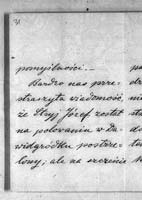 pomyślności. –
Bardzo nas prze-
straszyła wiadomość,
że Stryj Józef został
na polowaniu w Da-
widgródku postrze-
lony; ale na szczęście